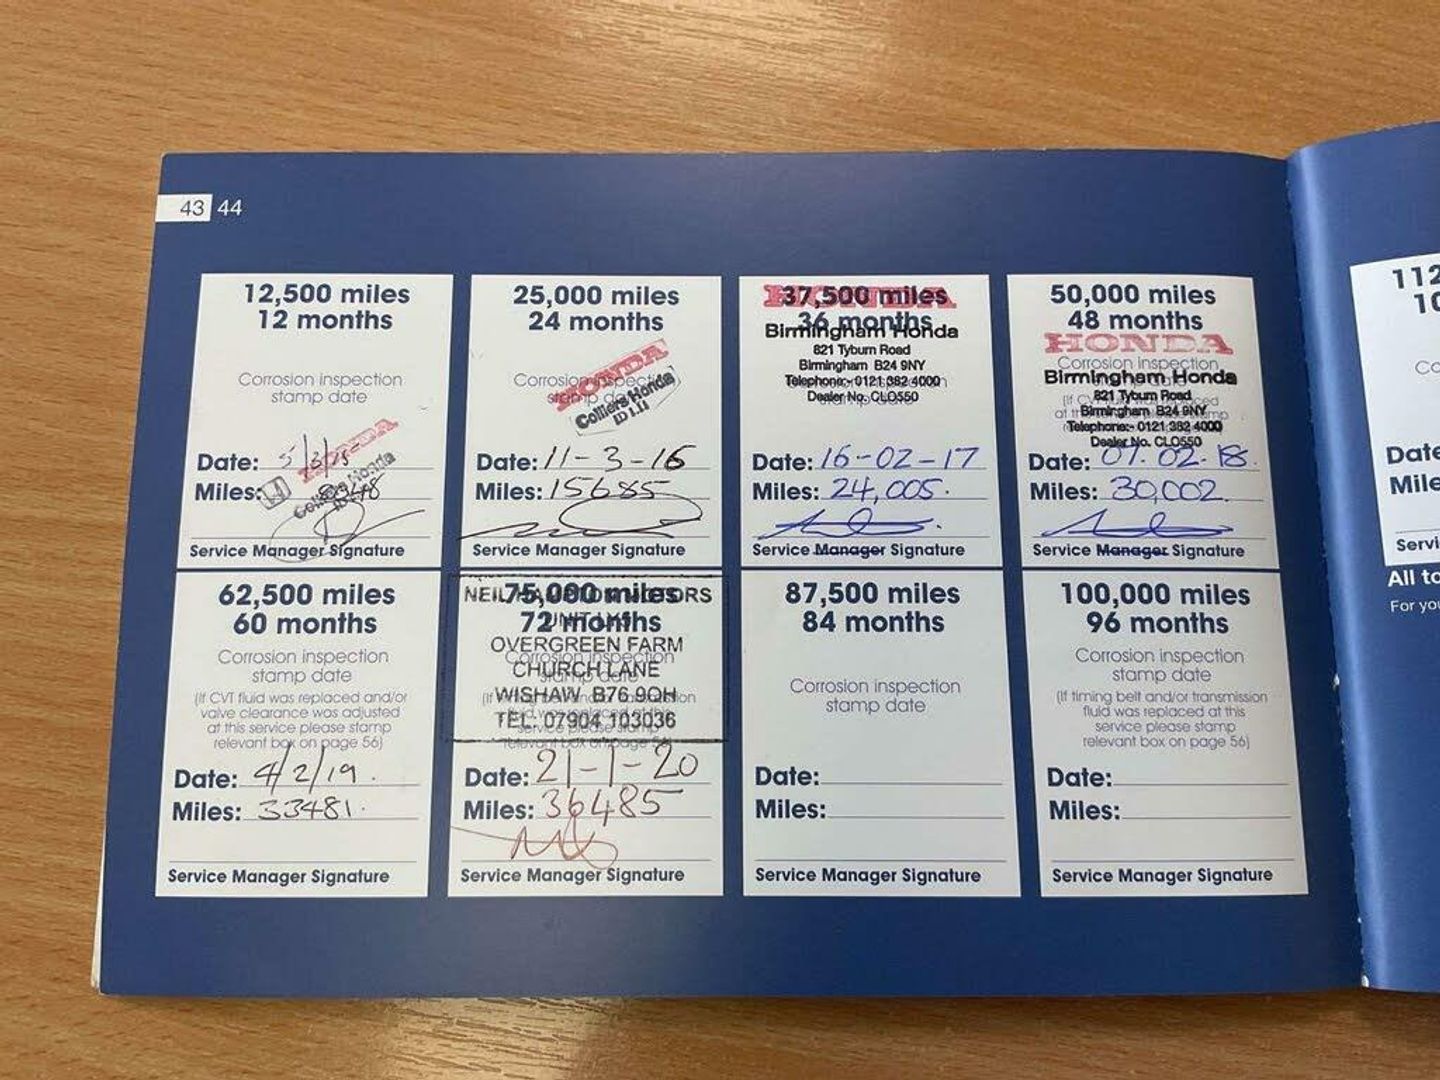 43 44
12,500 miles
12 months
Corrosion inspection
stamp date
HONDA
Colliers Honda
Date: 5/3/15
Miles:
Service Manager Signature
25,000 miles
24 months
Corrosion inspection
stamp date
HONDA
Colliers Honda
Date: 11-3-16
Miles: 15685
Service Manager Signature
HONDA
37,500 miles
36 months
Birmingham Honda
821 Tyburn Road
Birmingham B24 9NY
Telephone:- 0121 382 4000
Dealer No. CLO550
stamp date
Date: 16-02-17
Miles: 24,005.
Service Manager Signature
50,000 miles
48 months
HONDA
Corrosion inspection
Birmingham Honda
821 Tyburn Road
Birmingham B24 9NY
Telephone:- 0121 382 4000
Dealer No. CLO550
Date: 07.02.18.
Miles: 30,002.
Service Manager Signature
62,500 miles
60 months
Corrosion inspection
stamp date
(If CVT fluid was replaced and/or
valve clearance was adjusted
at this service please stamp
relevant box on page 56)
Date: 4/2/19.
Miles: 33481.
Service Manager Signature
75,000 miles
72 months
NEIL MOTORS
UNIT
OVERGREEN FARM
Corrosion inspection
CHURCH LANE
stamp date
WISHAW B76 9QH
TEL: 07904 103036
service please stamp
relevant box on page 56)
Date: 21-1-20
Miles: 36485
Service Manager Signature
87,500 miles
84 months
Corrosion inspection
stamp date
Date:
Miles:
Service Manager Signature
100,000 miles
96 months
Corrosion inspection
stamp date
(If timing belt and/or transmission
fluid was replaced at this
service please stamp
relevant box on page 56)
Date:
Miles:
Service Manager Signature
112
10
Co
Date
Mile
Servi
All to
For you